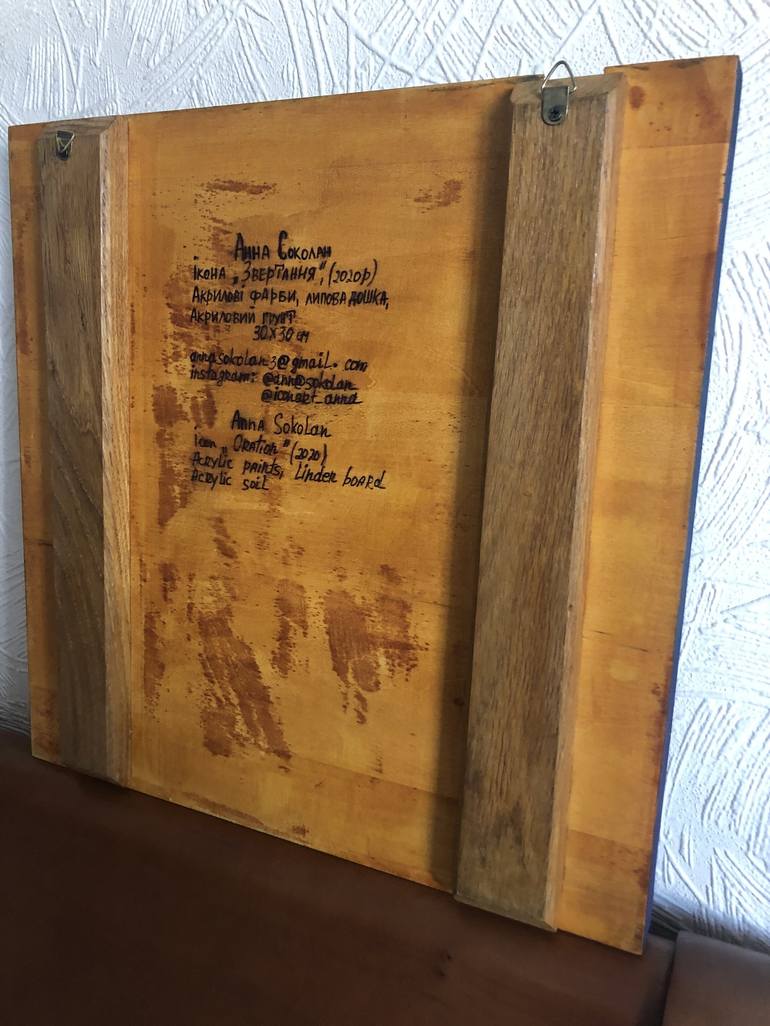 Анна Соколан
Ікона „Звертання", (2020р)
Акрилові фарби, липова дошка,
Акриловий грунт
30х30 см
annasokolan3@gmail.com
instagram: @ann@sokolan
@iconart_anna
Anna Sokolan
Icon „Oration" (2020)
Acrylic paints, Linden board
Acrylic soil